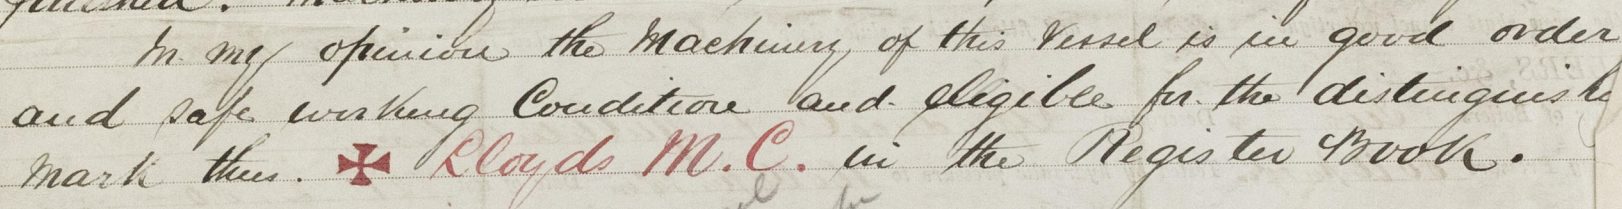 In my opinion the Machinery of this Vessel is in good order
and safe working Condition and eligible for the distinguish
mark thus. ✠ Lloyds M.C. in the Register Book.